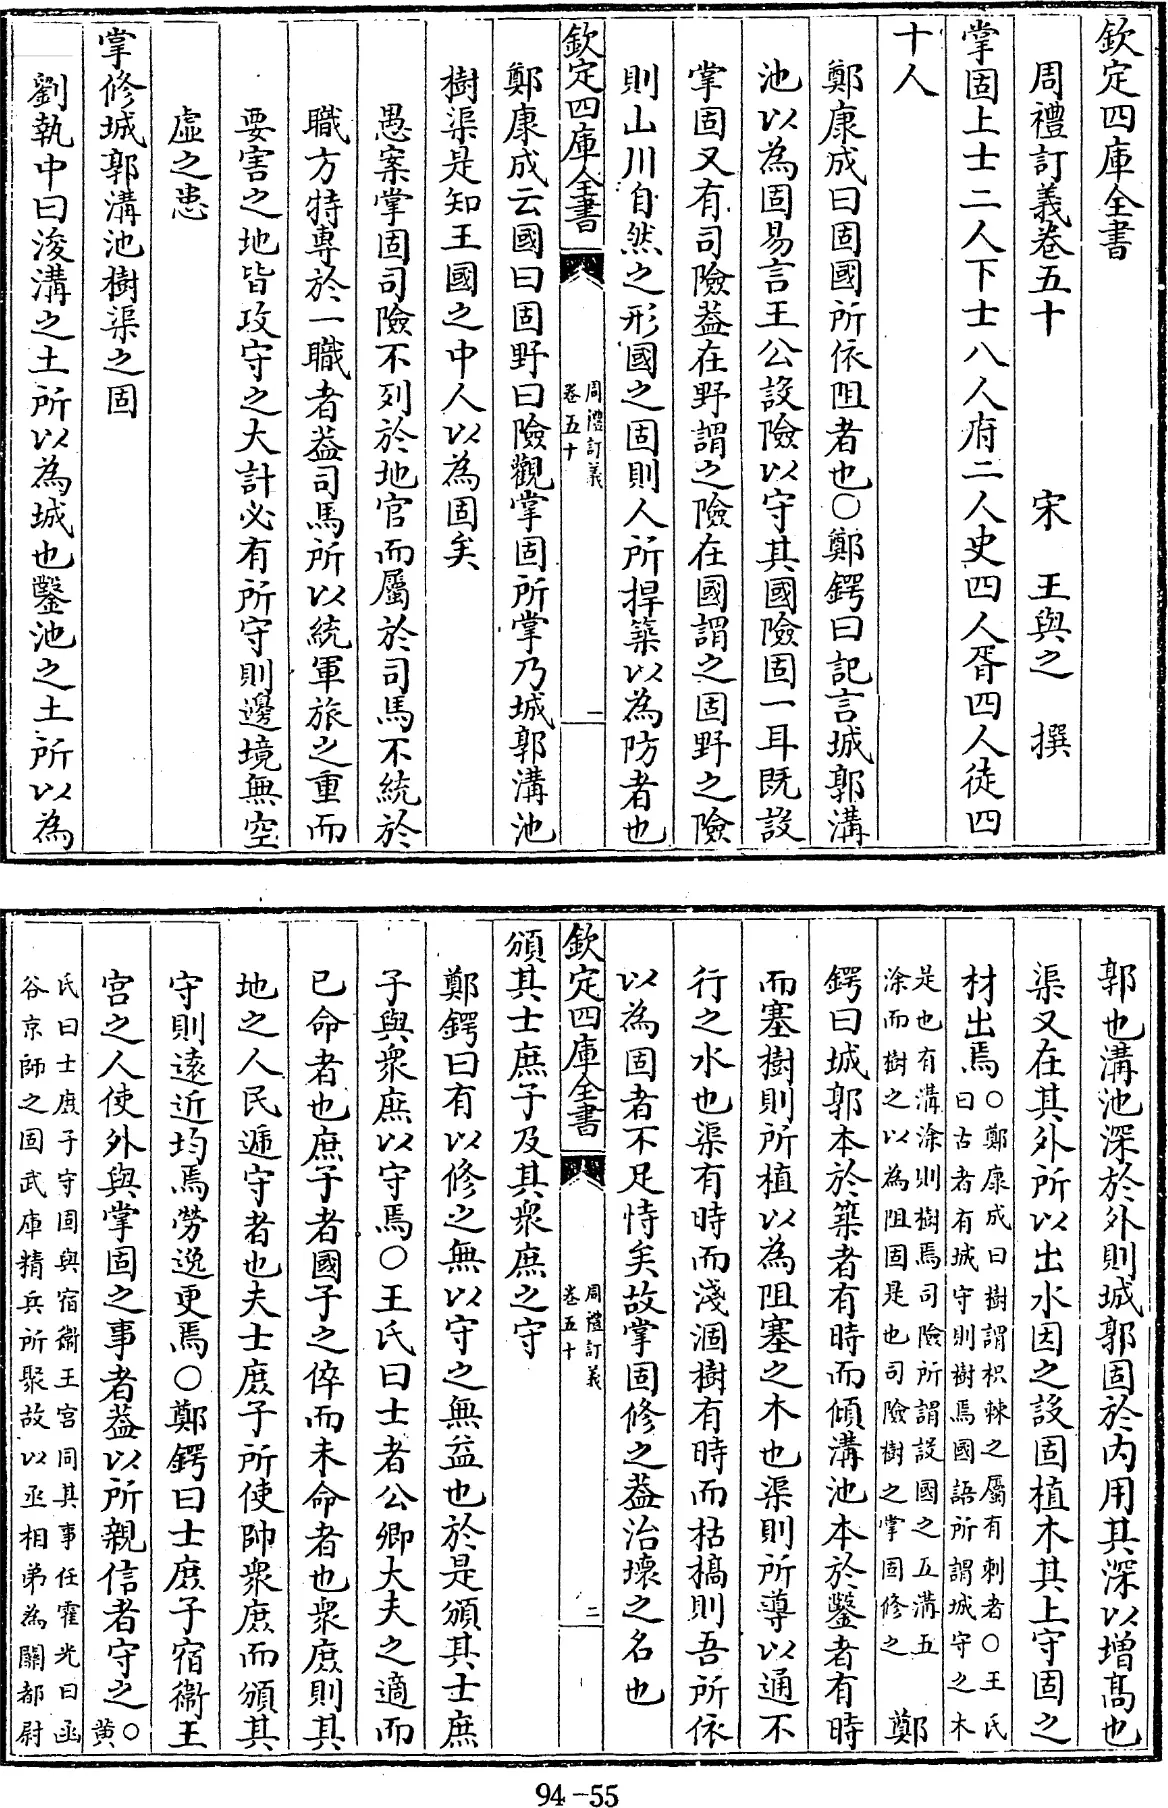 欽定四庫全書
周禮訂義卷五十
宋　王與之　撰
掌固上士二人下士八人府二人史四人胥四人徒四
十人
鄭康成曰固國所依阻者也○鄭鍔曰記言城郭溝
池以為固易言王公設險以守其國險固一耳既設
掌固又有司險葢在野謂之險在國謂之固野之險
則山川自然之形國之固則人所捍築以為防者也
欽定四庫全書
周禮訂義
卷五十
一
鄭康成云國曰固野曰險觀掌固所掌乃城郭溝池
樹渠是知王國之中人以為固矣
愚案掌固司險不列於地官而屬於司馬不統於
職方特專於一職者葢司馬所以統軍旅之重而
要害之地皆攻守之大計必有所守則邊境無空
虛之患
掌修城郭溝池樹渠之固
劉執中曰浚溝之土所以為城也鑿池之土所以為
郭也溝池深於外則城郭固於內用其深以增髙也
渠又在其外所以出水因之設固植木其上守固之
材出焉
○鄭康成曰樹謂枳棘之屬有刺者○王氏
曰古者有城守則樹焉國語所謂城守之木
是也有溝涂則樹焉司險所謂設國之五溝五
涂而樹之以為阻固是也司險樹之掌固修之
鄭
鍔曰城郭本於築者有時而傾溝池本於鑿者有時
而塞樹則所植以為阻塞之木也渠則所導以通不
行之水也渠有時而淺涸樹有時而枯槁則吾所依
以為固者不足恃矣故掌固修之葢治壞之名也
欽定四庫全書
周禮訂義
卷五十
二
頒其士庶子及其衆庶之守
鄭鍔曰有以修之無以守之無益也於是頒其士庶
子與衆庶以守焉○王氏曰士者公卿大夫之適而
已命者也庶子者國子之倅而未命者也衆庶則其
地之人民遞守者也夫士庶子所使帥衆庶而頒其
守則遠近均焉勞逸更焉○鄭鍔曰士庶子宿衞王
宫之人使外與掌固之事者葢以所親信者守之○
黄
氏曰士庶子守固與宿衞王宫同其事任霍光曰函
谷京師之固武庫精兵所聚故以丞相弟為關都尉
94-55